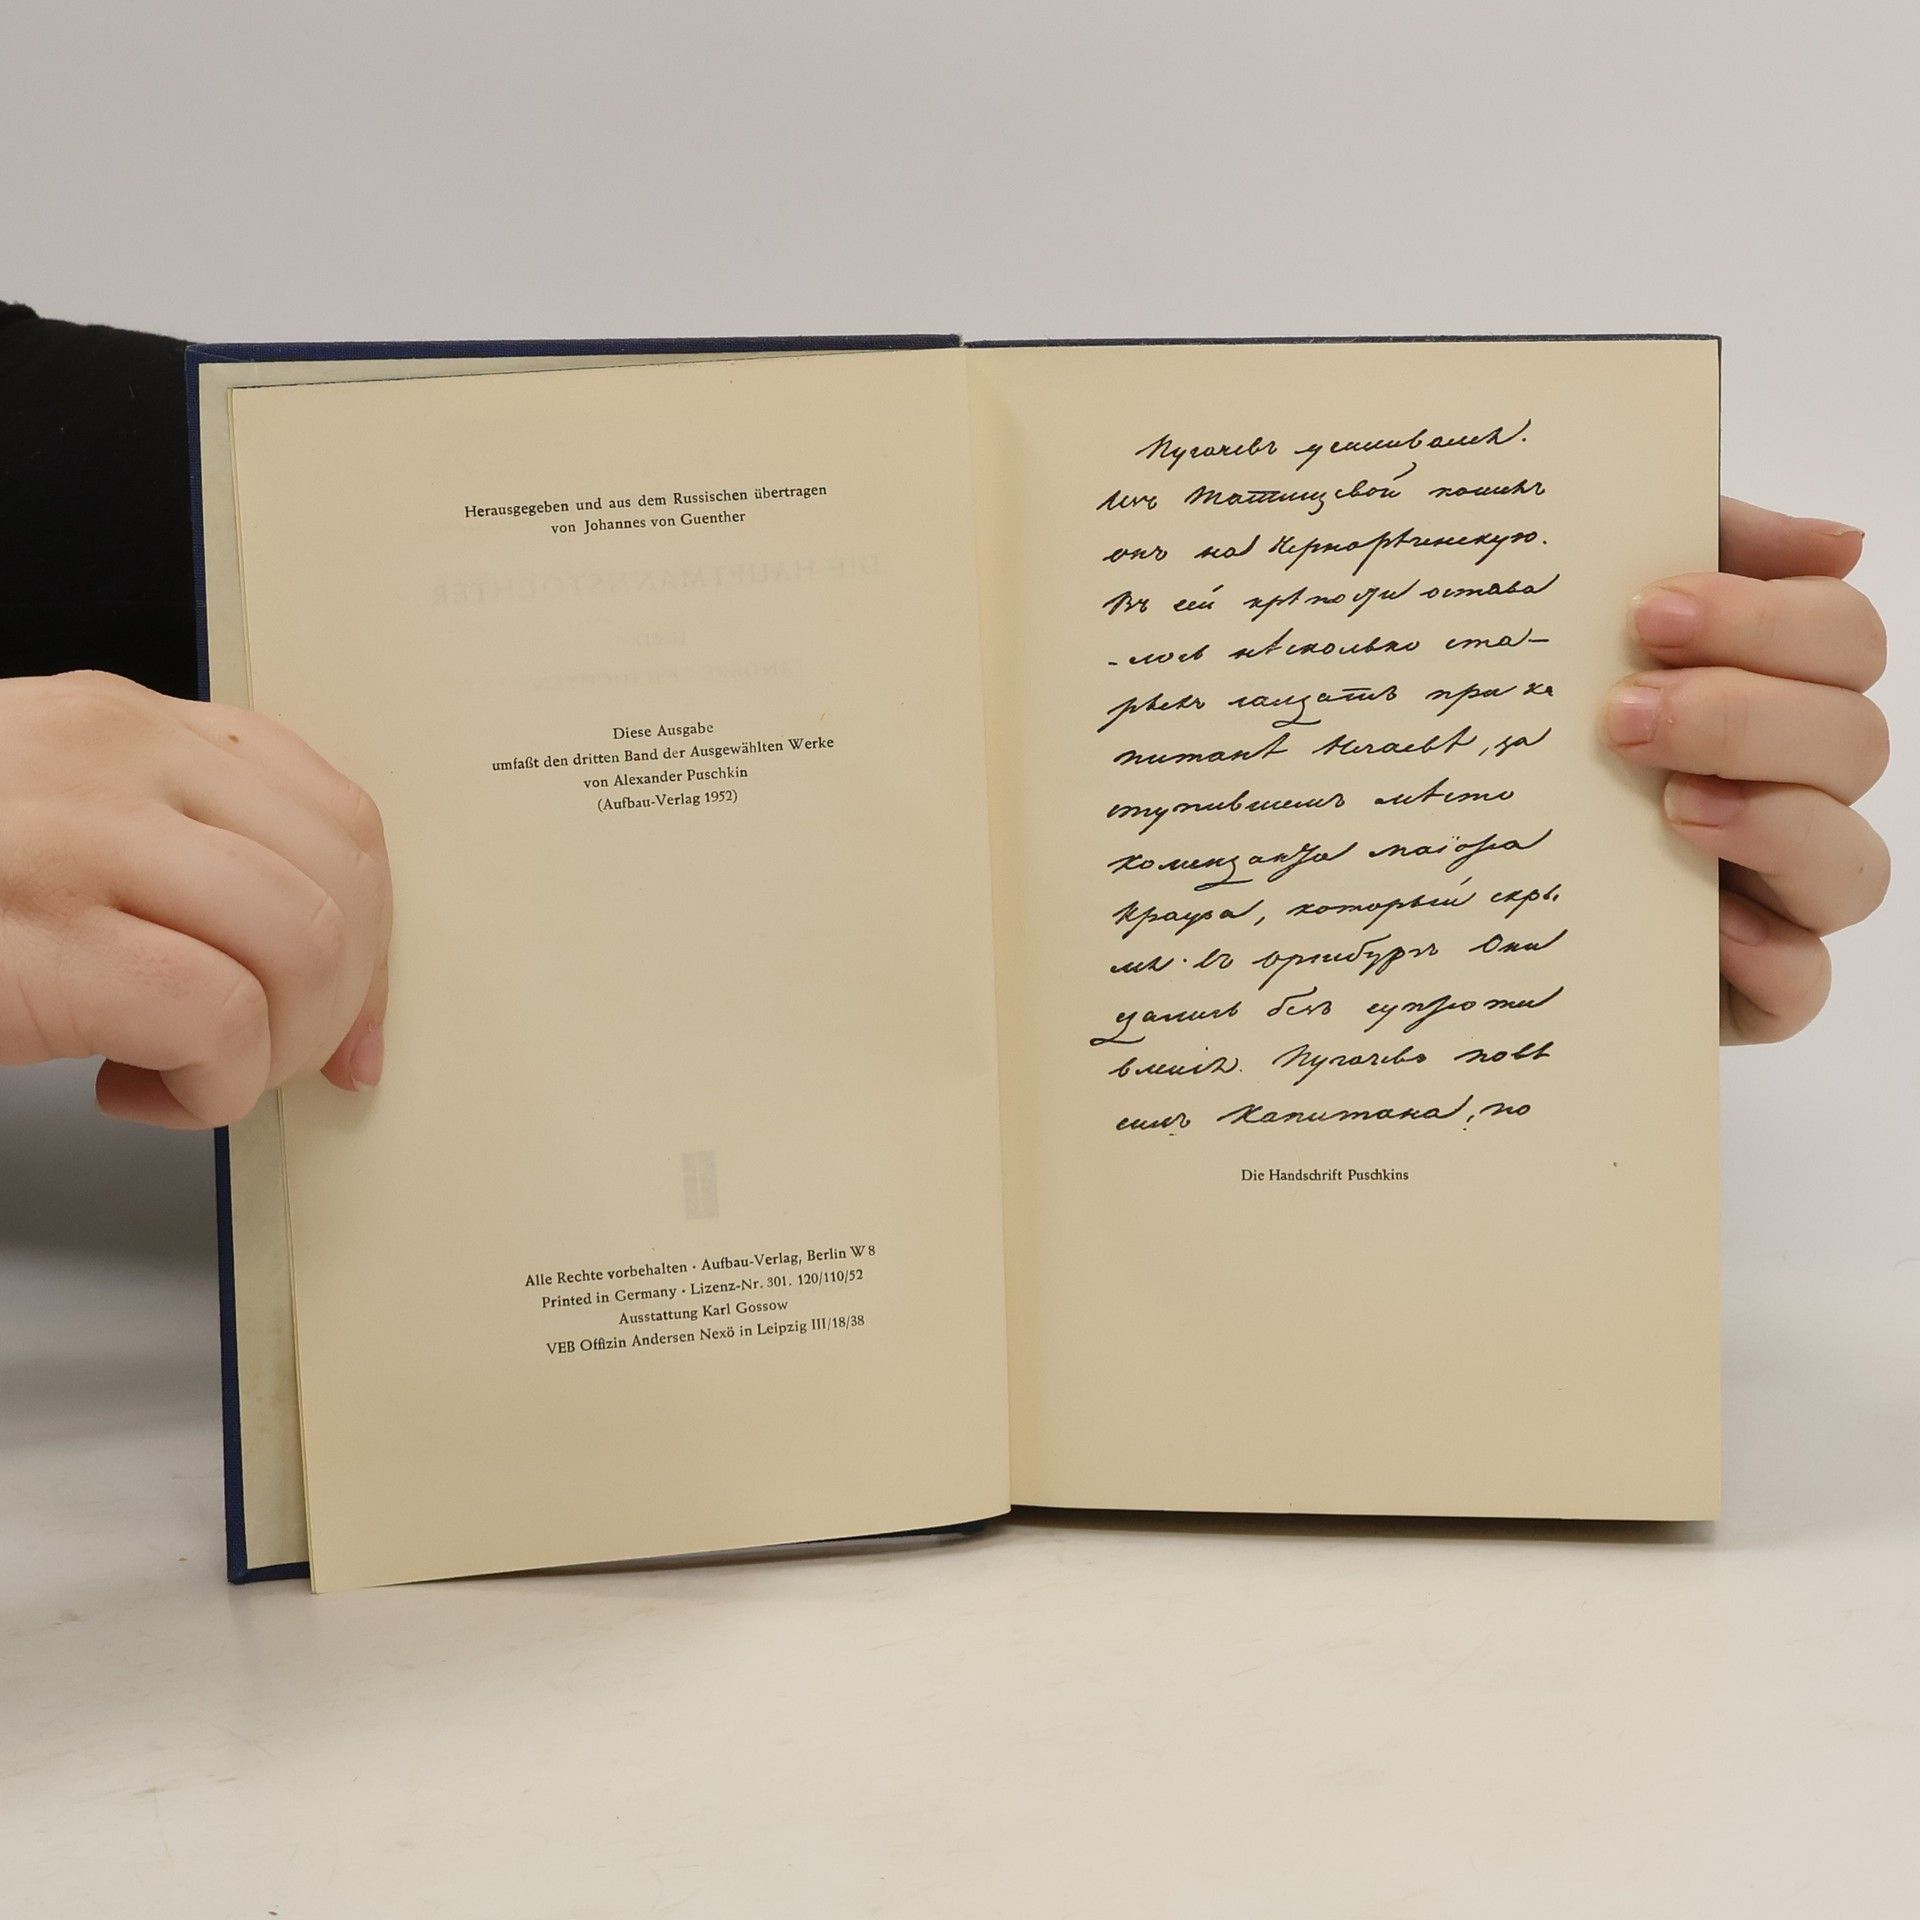 Herausgegeben und aus dem Russischen übertragen
von Johannes von Guenther
Diese Ausgabe
umfaßt den dritten Band der Ausgewählten Werke
von Alexander Puschkin
(Aufbau-Verlag 1952)
Alle Rechte vorbehalten · Aufbau-Verlag, Berlin W 8
Printed in Germany · Lizenz-Nr. 301. 120/110/52
Ausstattung Karl Gossow
VEB Offizin Andersen Nexö in Leipzig III/18/38
Пугачевъ усиливался.
Изъ Татищевой пошелъ
онъ на Чернорѣченскую.
Въ сей крѣпости остава
-лось нѣсколько ста-
рыхъ солдатъ при ка
питанѣ Нечаевѣ, за
ступившемъ мѣсто
коменданта маіора
Краузе, который скры
лся въ Оренбургъ Они
сдались безъ супроти
вленія. Пугачевъ повѣ
силъ Капитана, по
Die Handschrift Puschkins